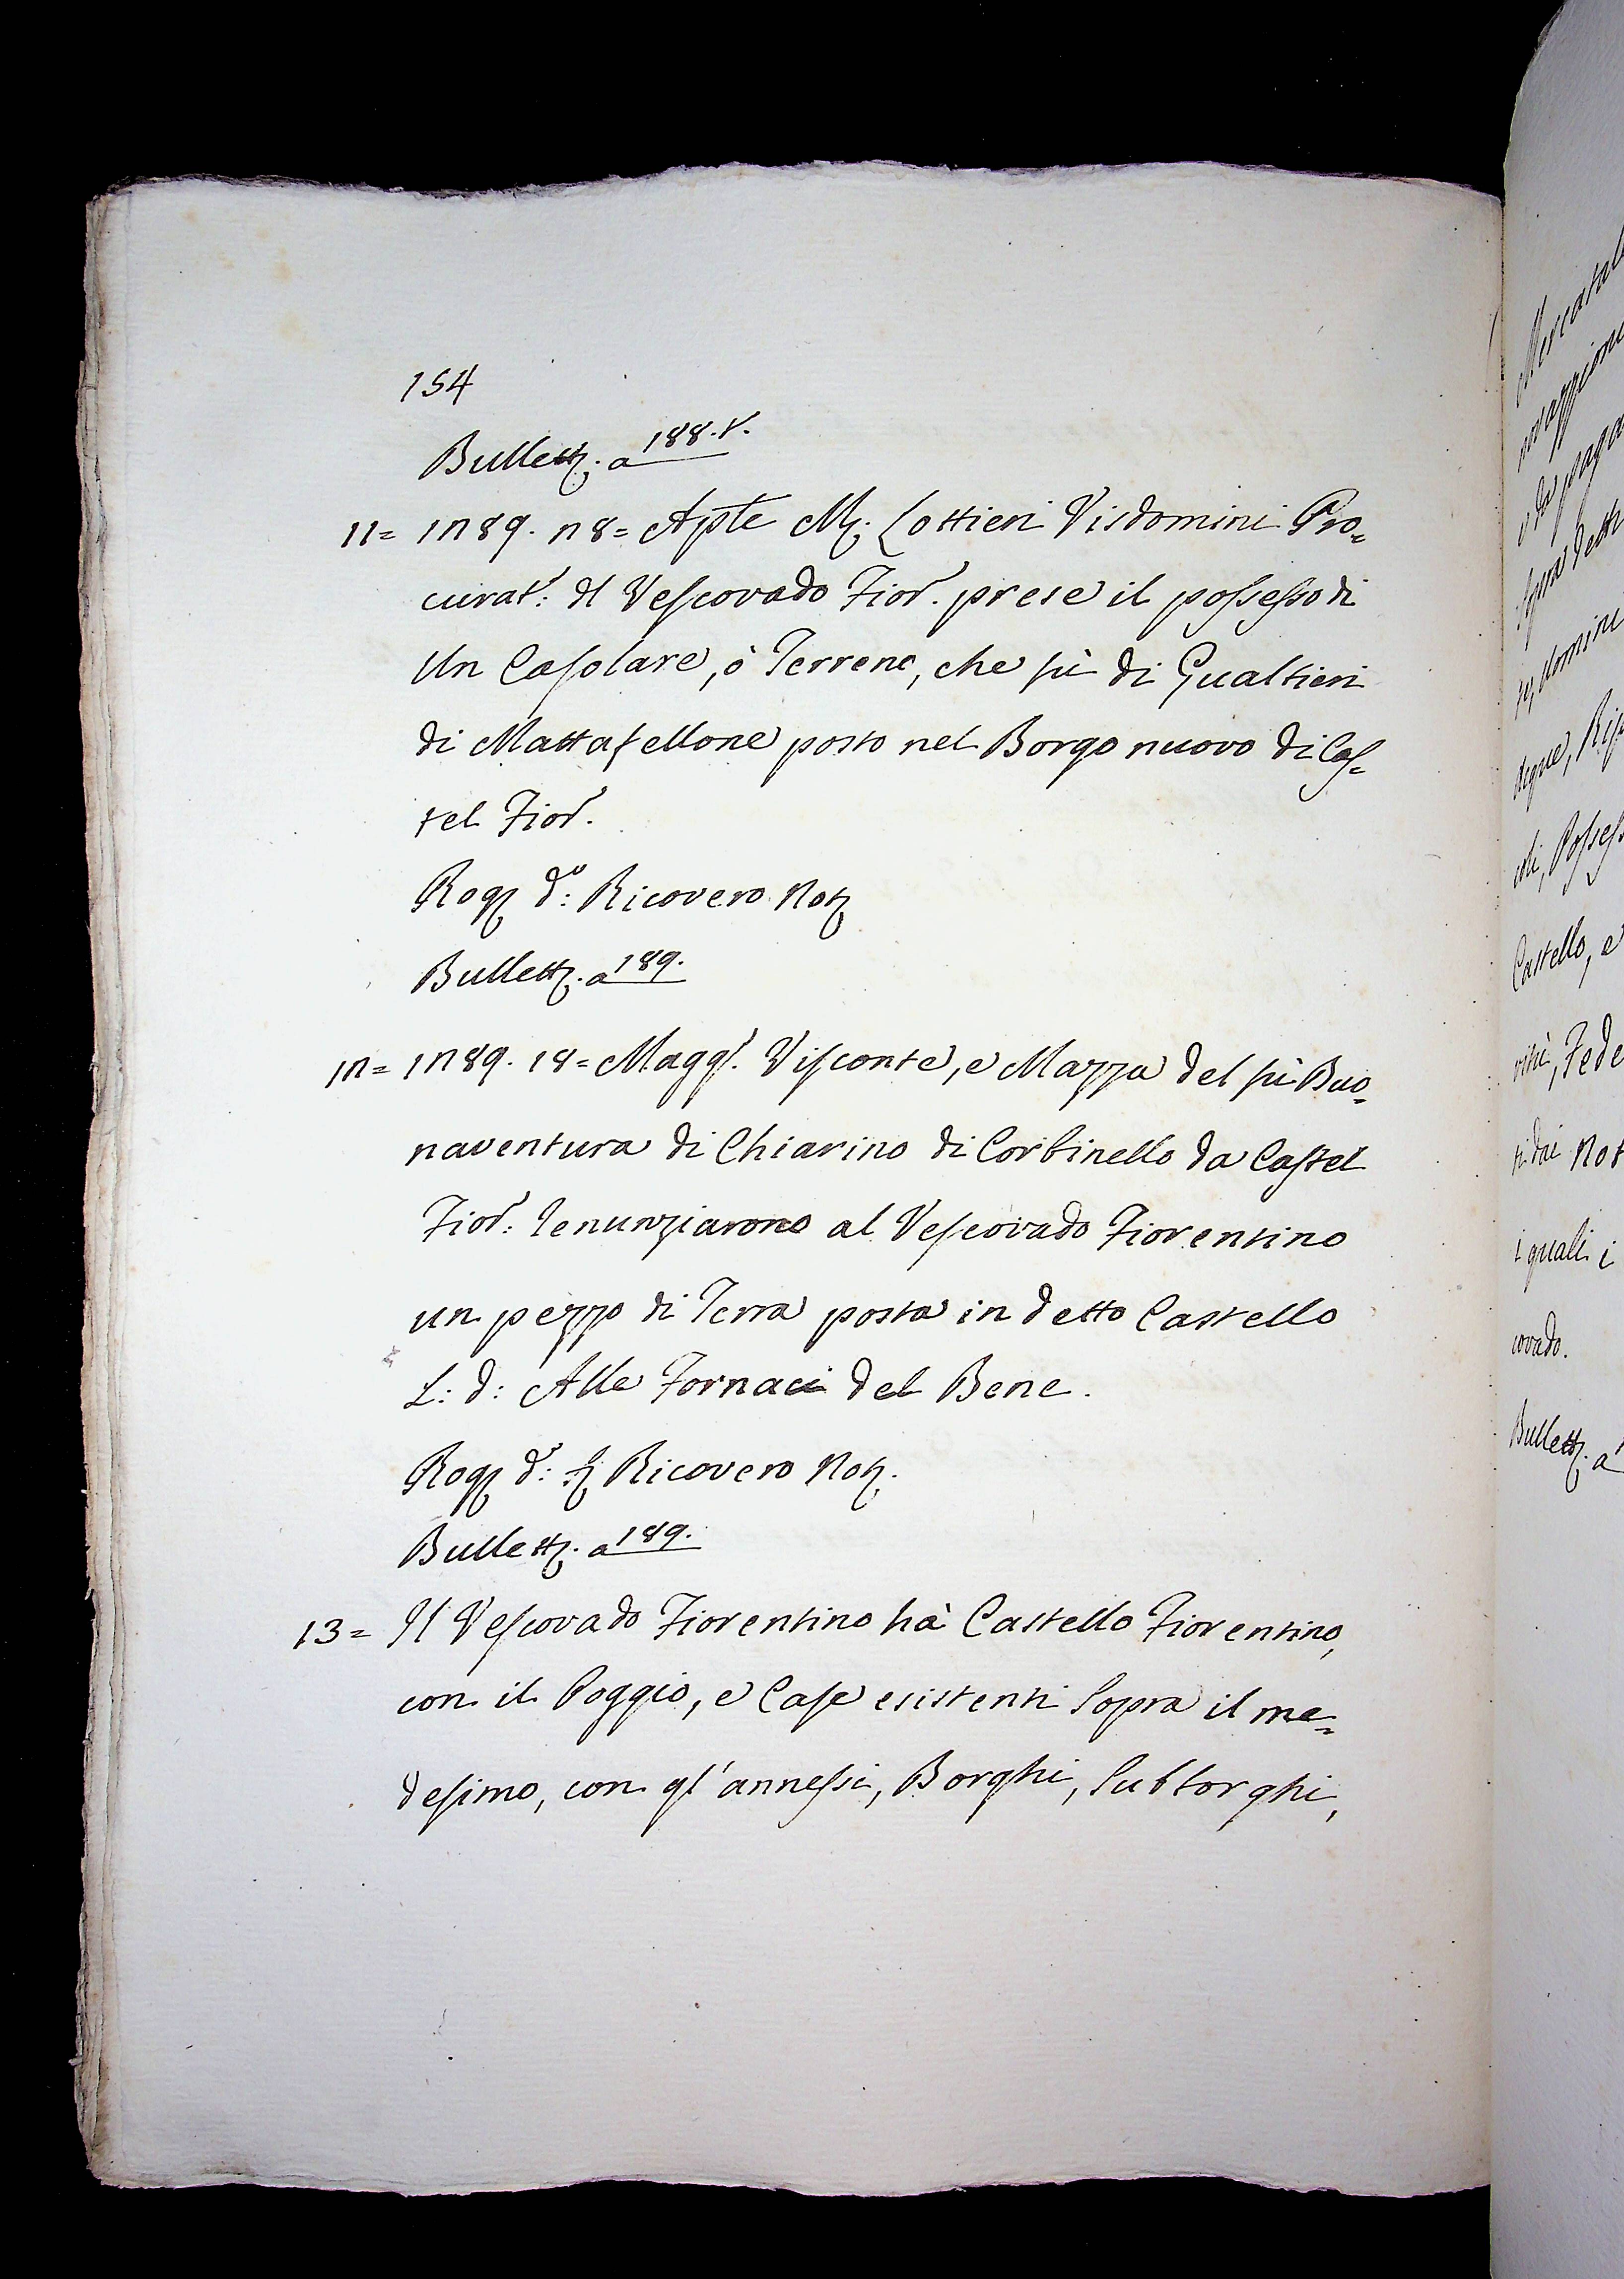 154
Bullett. a 188. v.
11= 1289. 28= Aple M. Lottieri Visdomini Pro=
curat.r: dl Vescovado Fior. prese il possesso di
Un Casolare, ò Terreno, che fù di Gualtieri
di Mattafellone posto nel Borgo nuovo di Cas=
tel Fior.
Rog. d.o: Ricovero Not.
Bullett. a 189.
12= 1289. 18= Magg. Visconte, e Mazza del fù Buo=
naventura di Chiarino di Corbinello da Castel
Fior: renunziarono al Vescovado Fiorentino
un pezzo di Terra posta in detto Castello
L: d: Alle Fornaci del Bene.
Rog. d.o: S. Ricovero Not.
Bullett. a 189.
13= Il Vescovado Fiorentino hà Castello Fiorentino,
con il Poggio, e Case esistenti Sopra il me=
desimo, con gl'annessi, Borghi, Subborghi,
Mercatal
e da paga
sopra dett
domini
Possess
Castello, e
Fede
ti dai Not
i quali i
covado.
Bullett. a 1